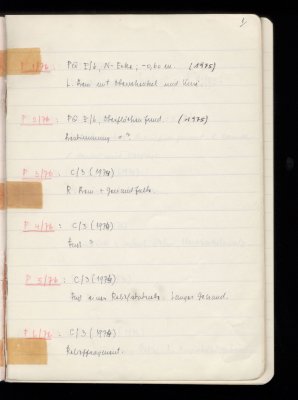 1
P 1/76 : PQ E/6, N-Ecke, -0,60 m. (1975)
L. Arm mit Oberschenkel und Knie.
P 2/76 : PQ E/6, Oberflächenfund. (1975)
Bestimmung ?
P 3/76 : C/3 (1976)
R. Arm + Gewandfalte.
P 4/76 : C/3 (1976)
Fuss ?
P 5/76 : C/3 (1976)
Fuss eines langes Gewand.
P 6/76 : C/3 (1976)
Relieffragment.